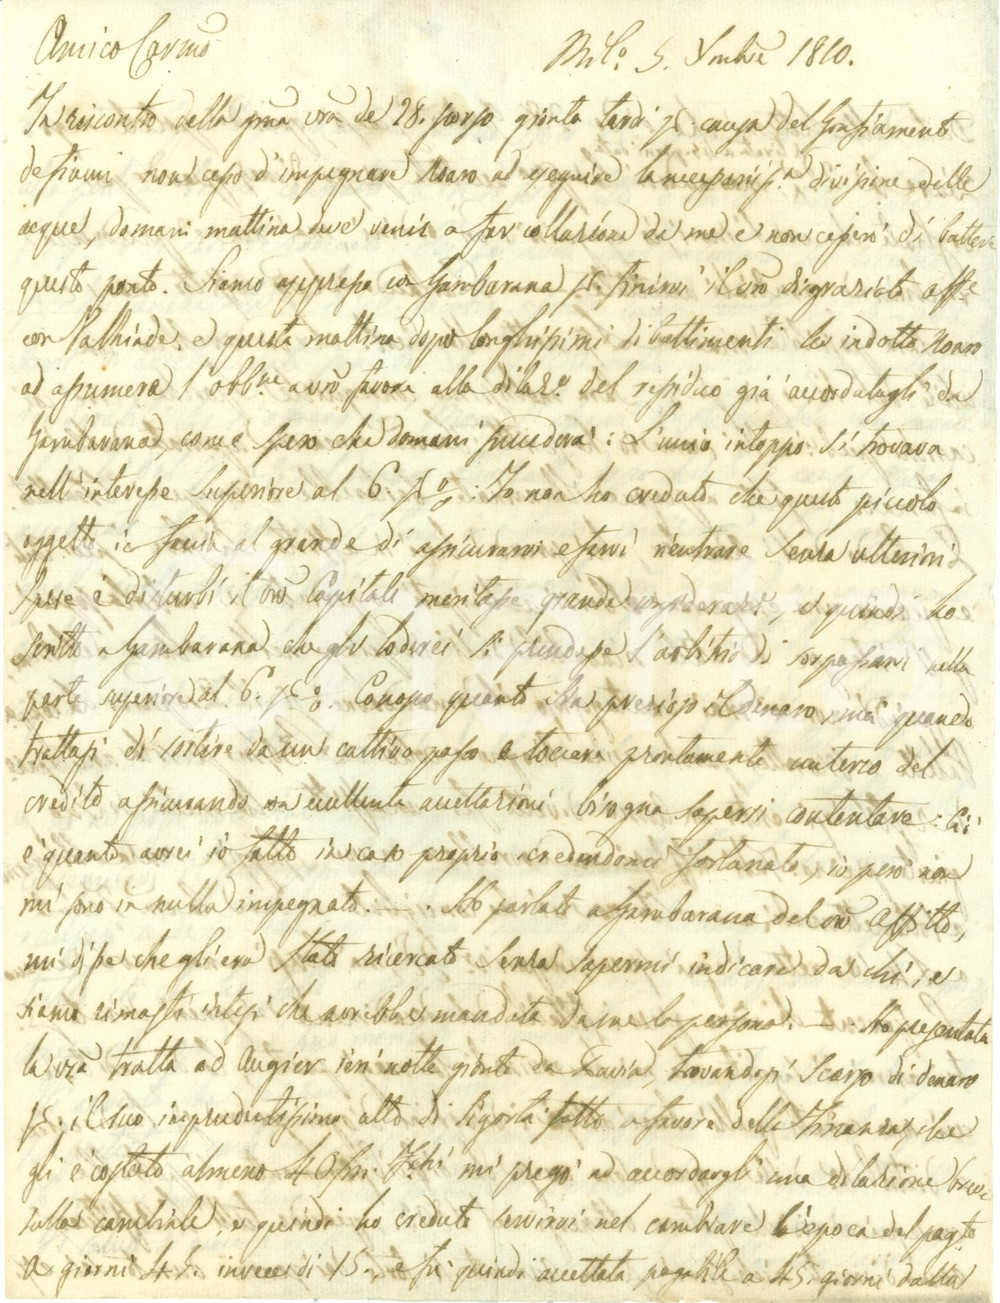 Amico Carmo
Mil.o 5. Xmbre 1810.
In riscontro della grma vra de 28. scorso giunta tardi p. causa del gonfiamento
de fiumi non cesso d'impegnare Noaro ad eseguire la necessariss.a divisione delle
acque, domani mattina deve venir a far collazione da me e non cesserò di battere
questo ponto. Siamo appresso con Gambarana p. finirvi il vro disgraziato aff.e
con Palhiade, e questa mattina dopo longhissimi dibattimenti ho indotto Noaro
ad assumere l'obb.ne a vro favore alla dilaz.e del residuo già accordatagli da
Gambarana, come spero che domani succederà: L'unico intoppo si trovava
nell'interesse superiore al 6. p%: Io non ho creduto che questo piccolo
oggetto in faccia al grande di assicurarvi e farvi rientrare senza ulteriori
spese e disturbi il vro Capitale meritasse grande considerazne, e quindi ho
scritto a Gambarana che gli loderei si prendesse l'arbitrio di sorpassarvi nella
parte superiore al 6. p%. Conosco quanto sia prezioso il denaro, ma quando
trattasi di sortire da un cattivo passo e toccare prontamente un terzo del
credito assicurando con eccellente accettazioni bisogna sapersi contentare: Ciò
è quanto avrei io fatto in caso proprio credendomi fortunato, io però non
mi sono in nulla impegnato. — . Ho parlato a Gambarana del vro affitto,
mi disse che gli era stato ricercato senza sapermi indicare da chi, e
siamo rimasti intesi che avrebbe mandata da me la persona. — . Ho presentata
la vra tratta ad Augier ieri notte giunto da Pavia, trovandosi scarso di denaro
p. il suo imprudentissimo atto di sigortà fatto a favore della Finanza, che
gli è costato almeno 40 mi. mi pregò ad accordargli una dilazione breve
sulla cambiale, e quindi ho creduto servirvi nel cambiare l'epoca del pag.to
a giorni 45. invece di 15., e fu quindi accettata pagabile a 45. giorni dalla